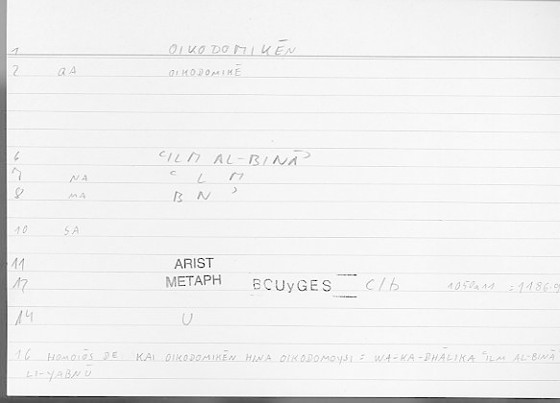 1 OIKODOMIKĒN
2 QA OIKODOMIKĒ
6 ʿILM AL-BINĀʾ
7 NA ʿ L M
8 MA B N ʾ
10 SA
11 ARIST
12 METAPH BCUyGES C/b 1050a11 : 1186.9
14 U
16 HOMOIŌS DE KAI OIKODOMIKĒN HINA OIKODOMOYSI = WA-KA-DHĀLIKA ʿILM AL-BINĀ
LI-YABNŪ